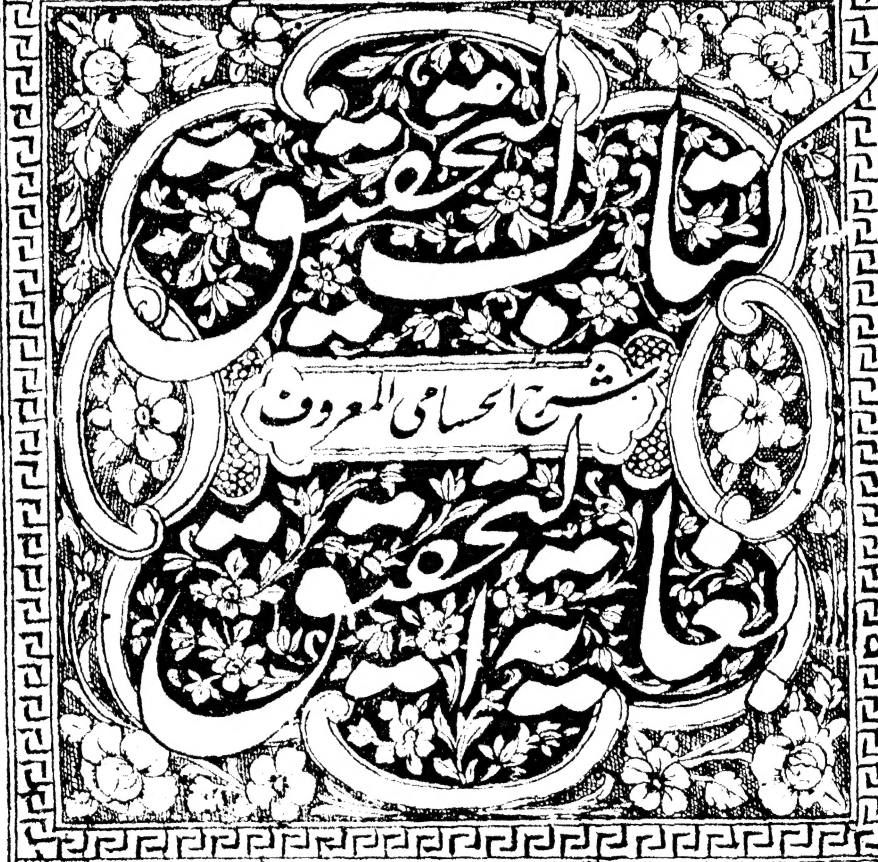 كتاب التحقيق
شرح الحسامی المعروف
بغاية التحقيق